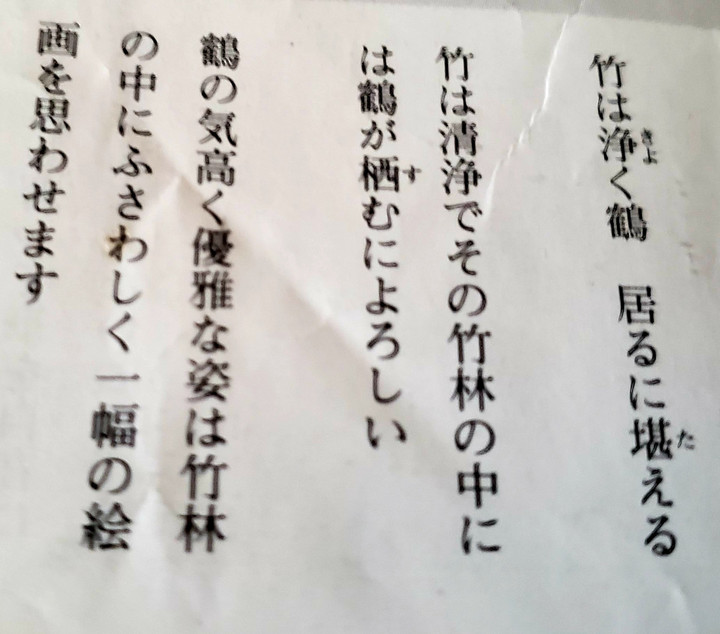 竹は浄く鶴　居るに堪える
きよ
た
竹は清浄でその竹林の中に
は鶴が栖むによろしい
す
鶴の気高く優雅な姿は竹林
の中にふさわしく一幅の絵
画を思わせます